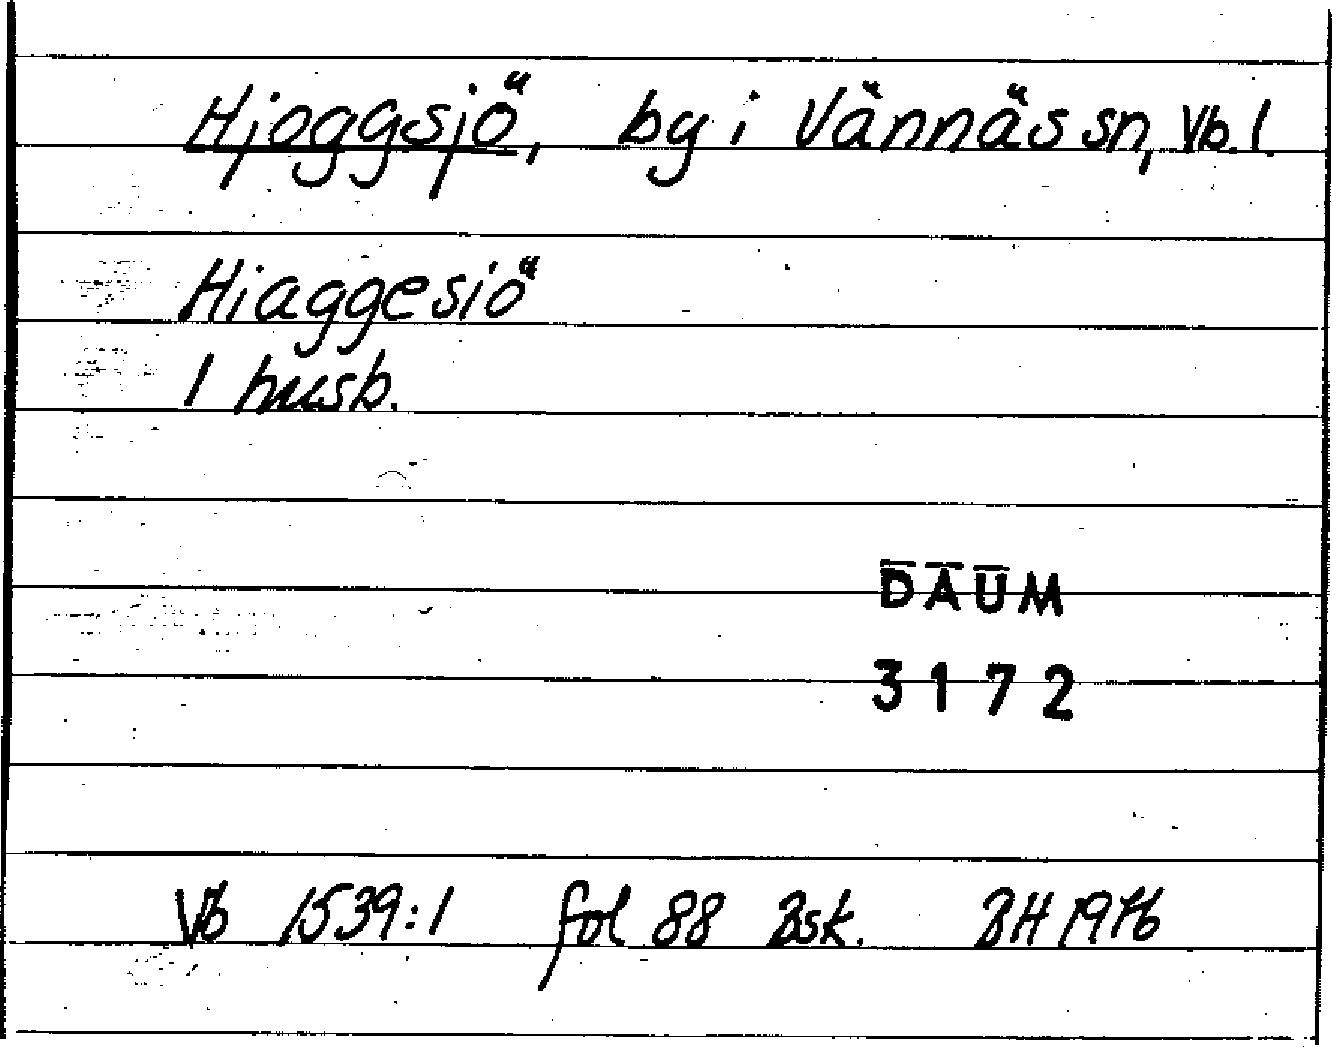 Hjoggsjö, by i Vännäs sn, Vb. l.
Hiaggesiö
1 husb.
DAUM
3172
Vb 1539:1 fol 88 Bsk. BH 1976